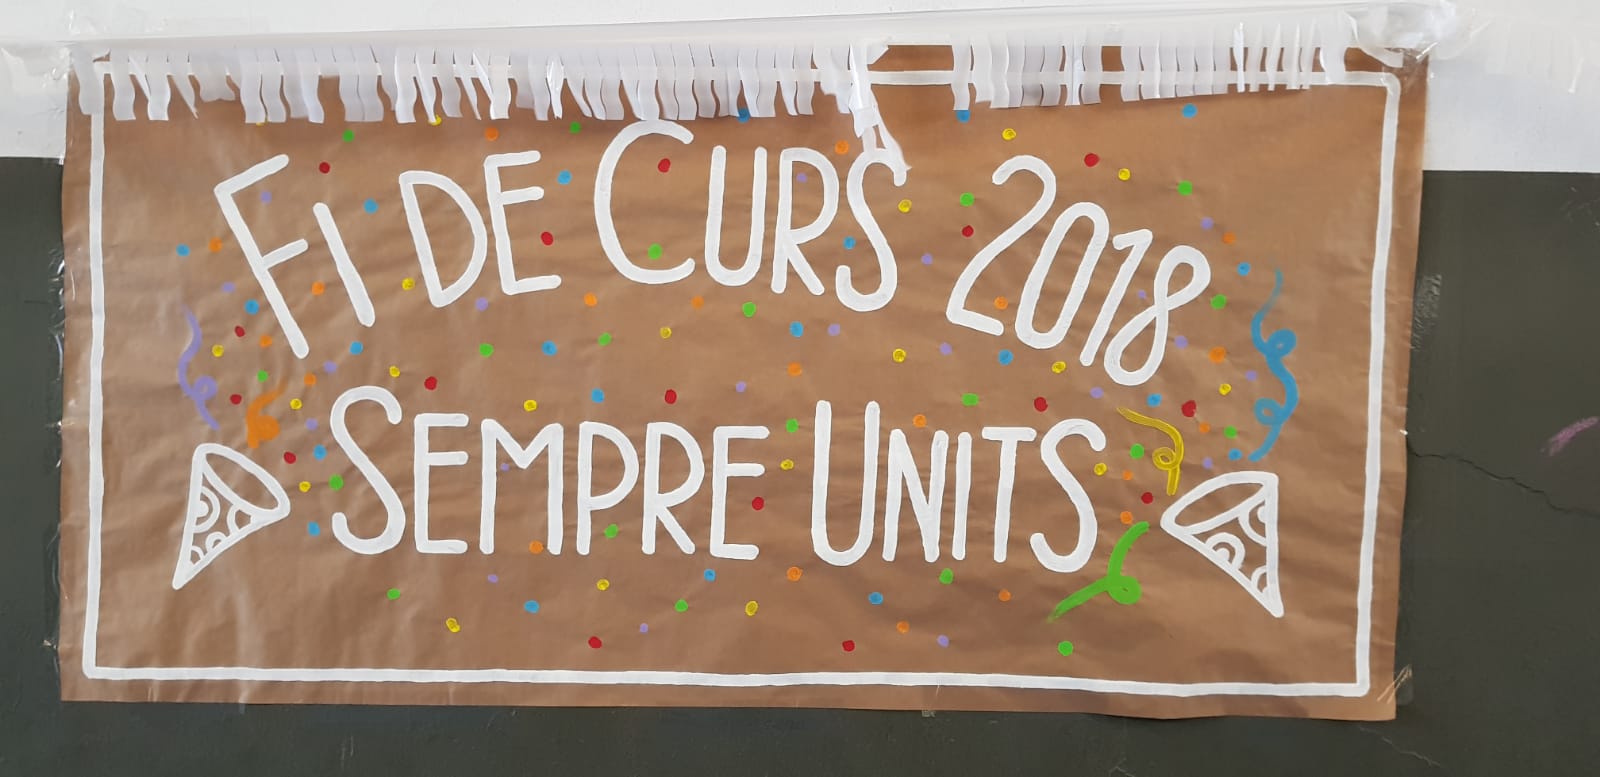 Fi de Curs 2018
Sempre Units